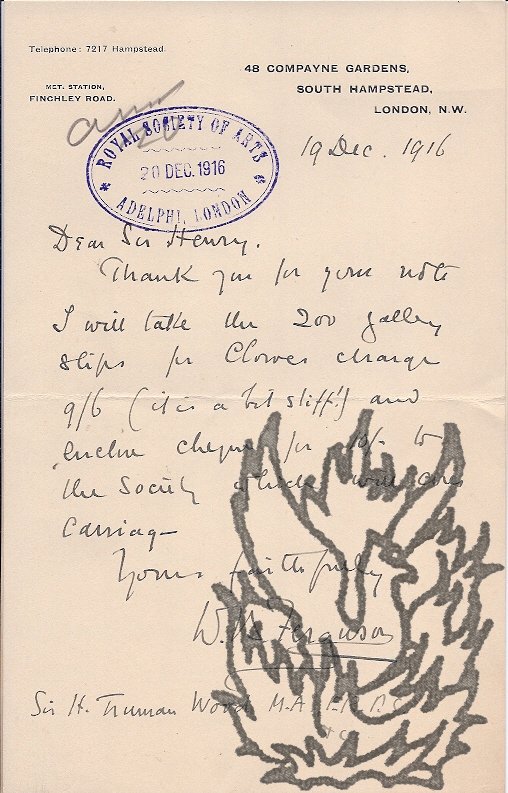 Telephone: 7217 Hampstead.
MET. STATION,
FINCHLEY ROAD.
48 COMPAYNE GARDENS,
SOUTH HAMPSTEAD,
LONDON, N.W.
ROYAL SOCIETY OF ARTS
20 DEC. 1916
ADELPHI, LONDON
19 Dec. 1916
Dear Sir Henry.
Thank you for your note
I will take the 200 galley
slips for Clowes charge
9/6 (it is a bit stiff!) and
enclose cheque for 10/- to
the Society which will cover
carriage
Yours faithfully
Ferguson
Sir H. Truman Wood M.A.